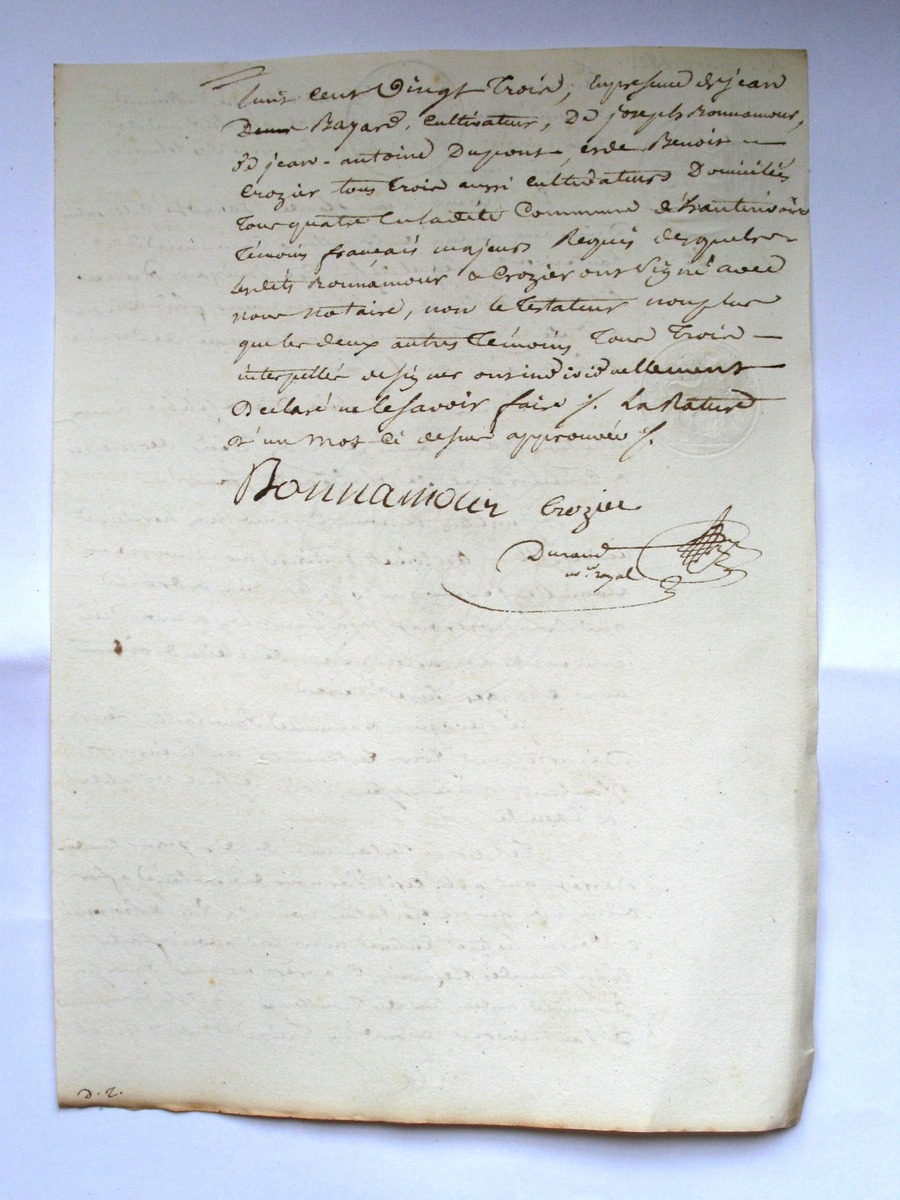 huit cent Vingt Trois, En presence de jean
Denis Bayard, Cultivateur, De joseph Bonnamour,
De jean-antoine Dupont, et de Benoit
Crozier tous trois aussi Cultivateurs Domiciliés
Tous quatre Commune d'hauterivoire
Témoins français majeurs Requis desquels
lesdits Bonnamour & Crozier ont Signé avec
nous notaire, non le Testateur non plus
que les deux autres Témoins Tous Trois
interpellés de signer ont individuellement
Déclaré ne le savoir faire ./. La Rature
d'un mot ci dessus approuvée ./.
Bonnamour Crozier
Durand
n.re royal
D. 2.